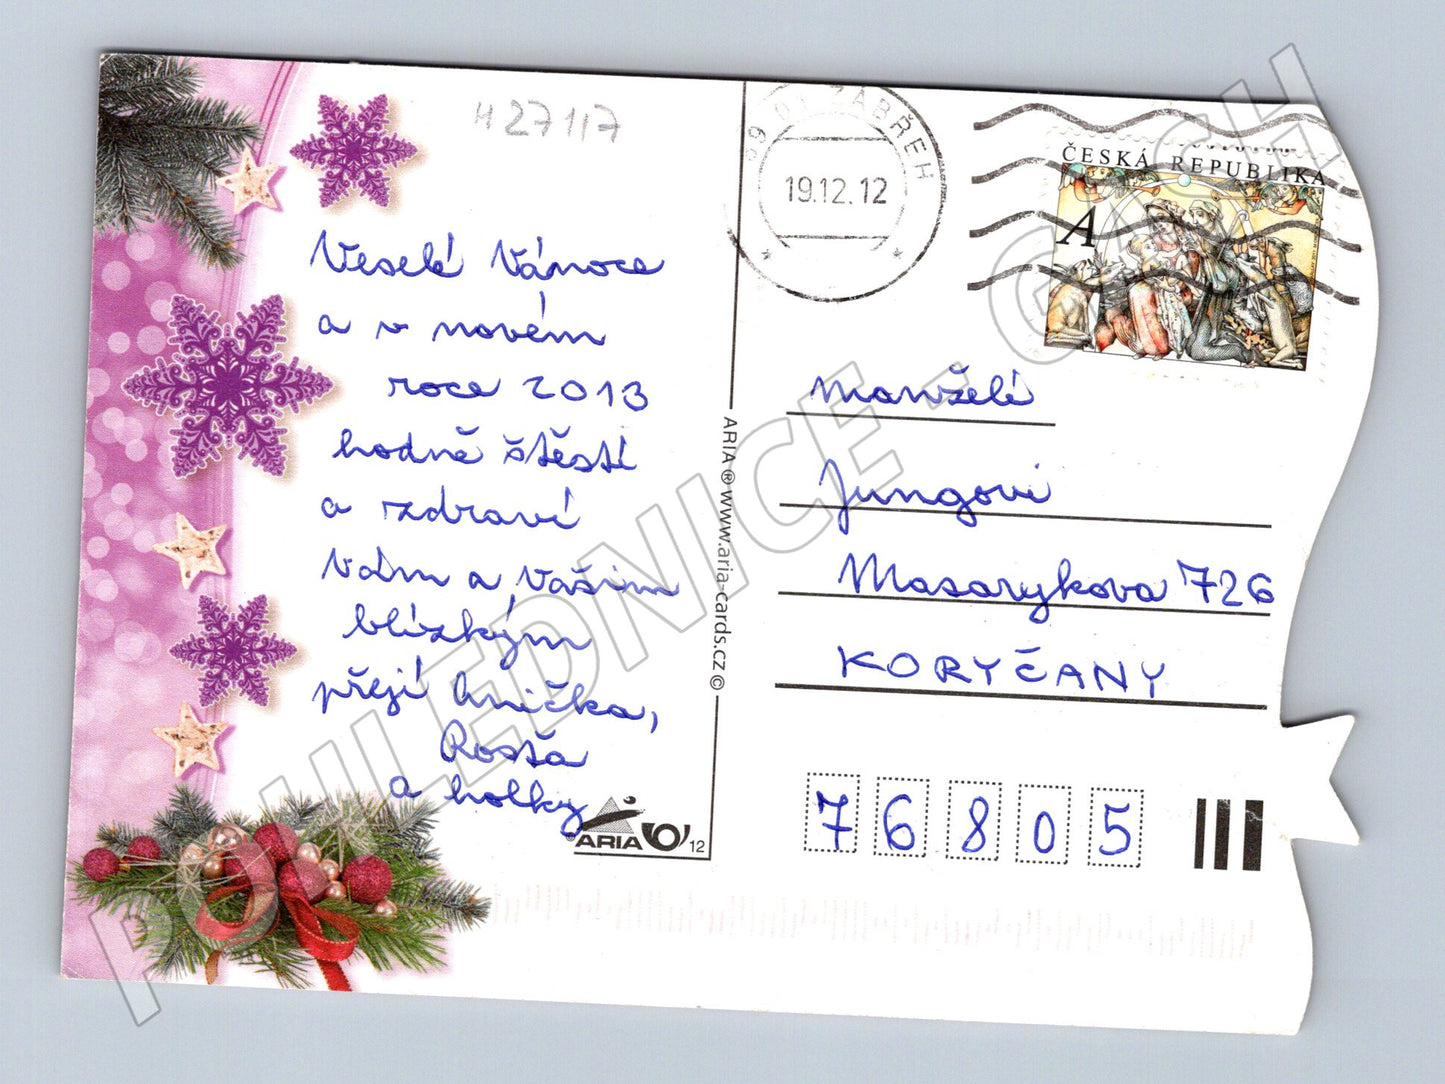 H27117
Veselé Vánoce
a v novém
roce 2013
hodně štěstí
a zdraví
Vám a Vašim
blízkým
přejí Anička,
Rosťa
a holky
ARIA
12
ARIA ® www.aria-cards.cz ©
ZÁBŘEH
19.12.12
ČESKÁ REPUBLIKA
A
Manželé
Jungovi
Masarykova 726
KORYČANY
76805
POHLEDNICE - GASH